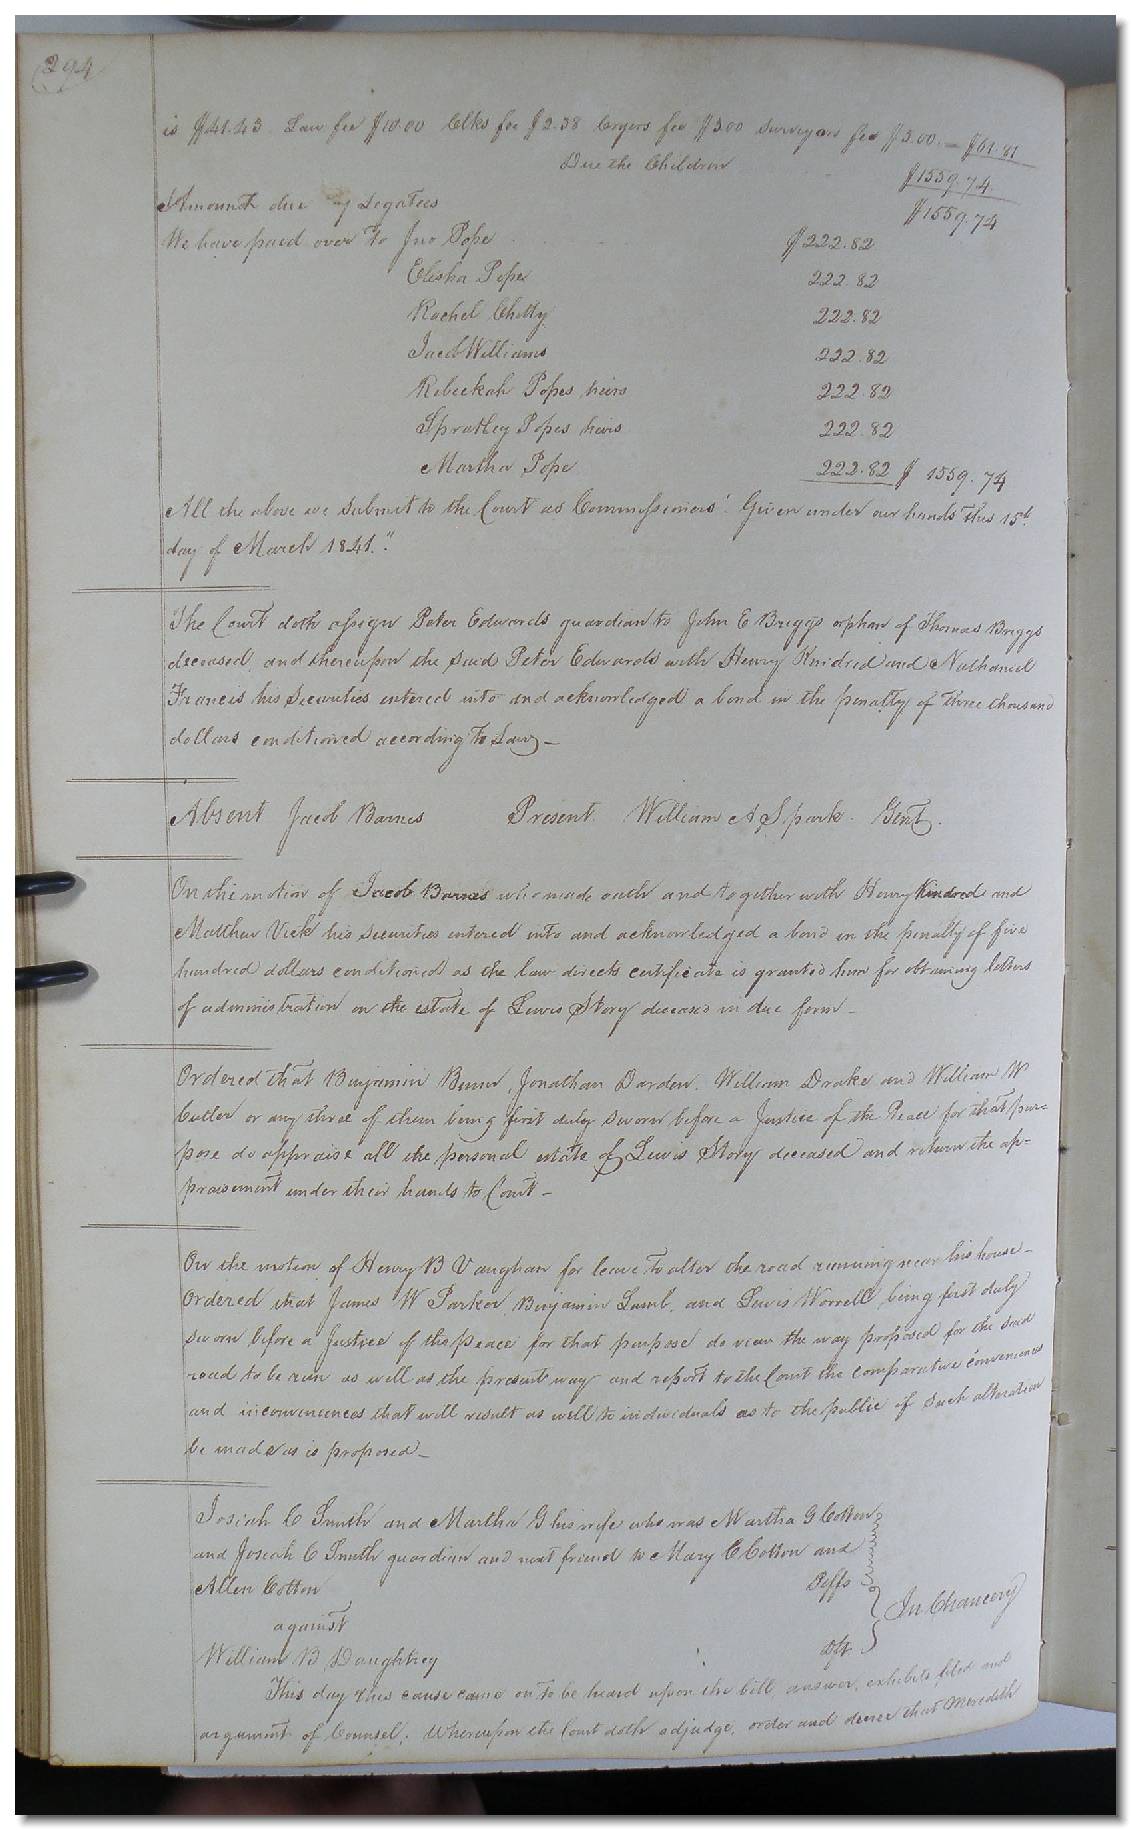 294
is $41.43 Law fee $10.00 Clks fee $2.38 Cryers fee $3.00 Surveyors fee $5.00. — $61.81
Due the Children $1559.74.
Amount due Legatees $1559.74
We have paid over to Jno Pope $222.82
Elisha Pope 222.82
Rachel Chitty 222.82
Jacob Williams 222.82
Rebeckah Popes heirs 222.82
Spratley Popes heirs 222.82
Martha Pope 222.82 $ 1559.74
All the above we submit to the Court as Commissioners. Given under our hands this 15th
day of March 1841."
The Court doth assign Peter Edwards guardian to John E Briggs orphan of Thomas Briggs
deceased, and thereupon the said Peter Edwards with Henry Kindred and Nathaniel
Francis his Securities entered into and acknowledged a bond in the penalty of three thousand
dollars conditioned according to Law —
Absent Jacob Barnes Present William A Spark. Gent.
On the motion of Jacob Barnes who made oath and together with Henry Kindred and
Matthew Vick his securities entered into and acknowledged a bond in the penalty of five
hundred dollars conditioned as the law directs certificate is granted him for obtaining letters
of administration on the estate of Lewis Story deceased in due form —
Ordered that Benjamin Bunn, Jonathan Darden, William Drake and William W
Cutler or any three of them being first duly sworn before a Justice of the Peace for that pur-
pose do appraise all the personal estate of Lewis Story deceased and return the ap-
praisement under their hands to Court —
On the motion of Henry B Vaughan for leave to alter the road running near his house —
Ordered that James W Parker Benjamin Lamb, and Lewis Worrell, being first duly
sworn before a Justice of the peace for that purpose do view the way proposed for the said
road to be run as well as the present way and report to the Court the comparative conveniences
and inconveniences that will result as well to individuals as to the public if such alteration
be made as is proposed —
Josiah C Smith and Martha G his wife who was Martha G Cotton
and Josiah C Smith guardian and next friend to Mary C Cotton and
Allen Cotton Plffs
against In Chancery
William B Daughtrey Dft
This day this cause came on to be heard upon the bill, answer, exhibits filed and
argument of Counsel. Whereupon the Court doth adjudge, order and decree that Meredith